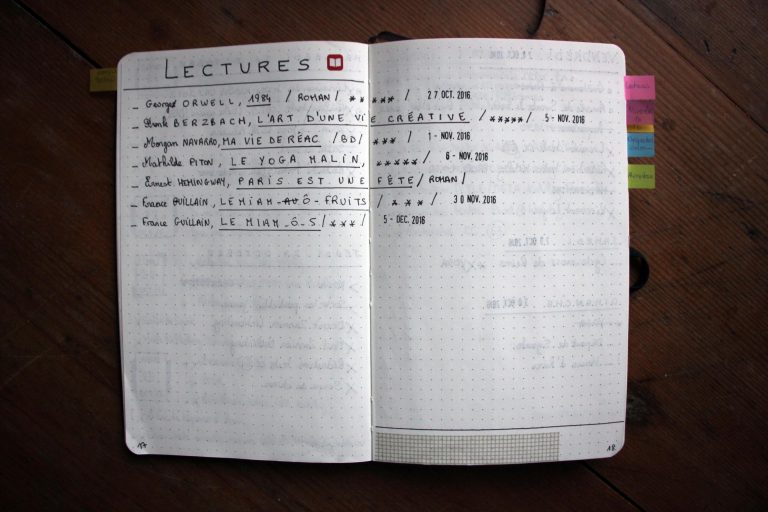 LECTURES
_ George ORWELL, 1984 / ROMAN / ***** / 27 OCT. 2016
_ Frank BERZBACH, L'ART D'UNE VIE CRÉATIVE / ***** / 5 - NOV. 2016
_ Morgan NAVARRO, MA VIE DE RÉAC / BD / *** / 1 - NOV. 2016
_ Mathilde PITON, LE YOGA MALIN, ***** / 6 - NOV. 2016
_ Ernest HEMINGWAY, PARIS EST UNE FÊTE / ROMAN /
_ France GUILLAIN, LE MIAM - AU Ô - FRUITS / *** / 30 NOV. 2016
_ France GUILLAIN, LE MIAM - Ô - 5 / *** / 5 - DEC. 2016
17
18